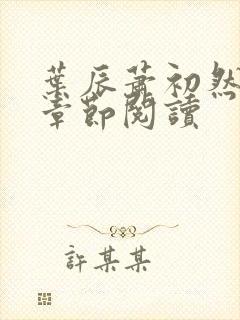 葉辰蕭初然
章節閱讀
許某某